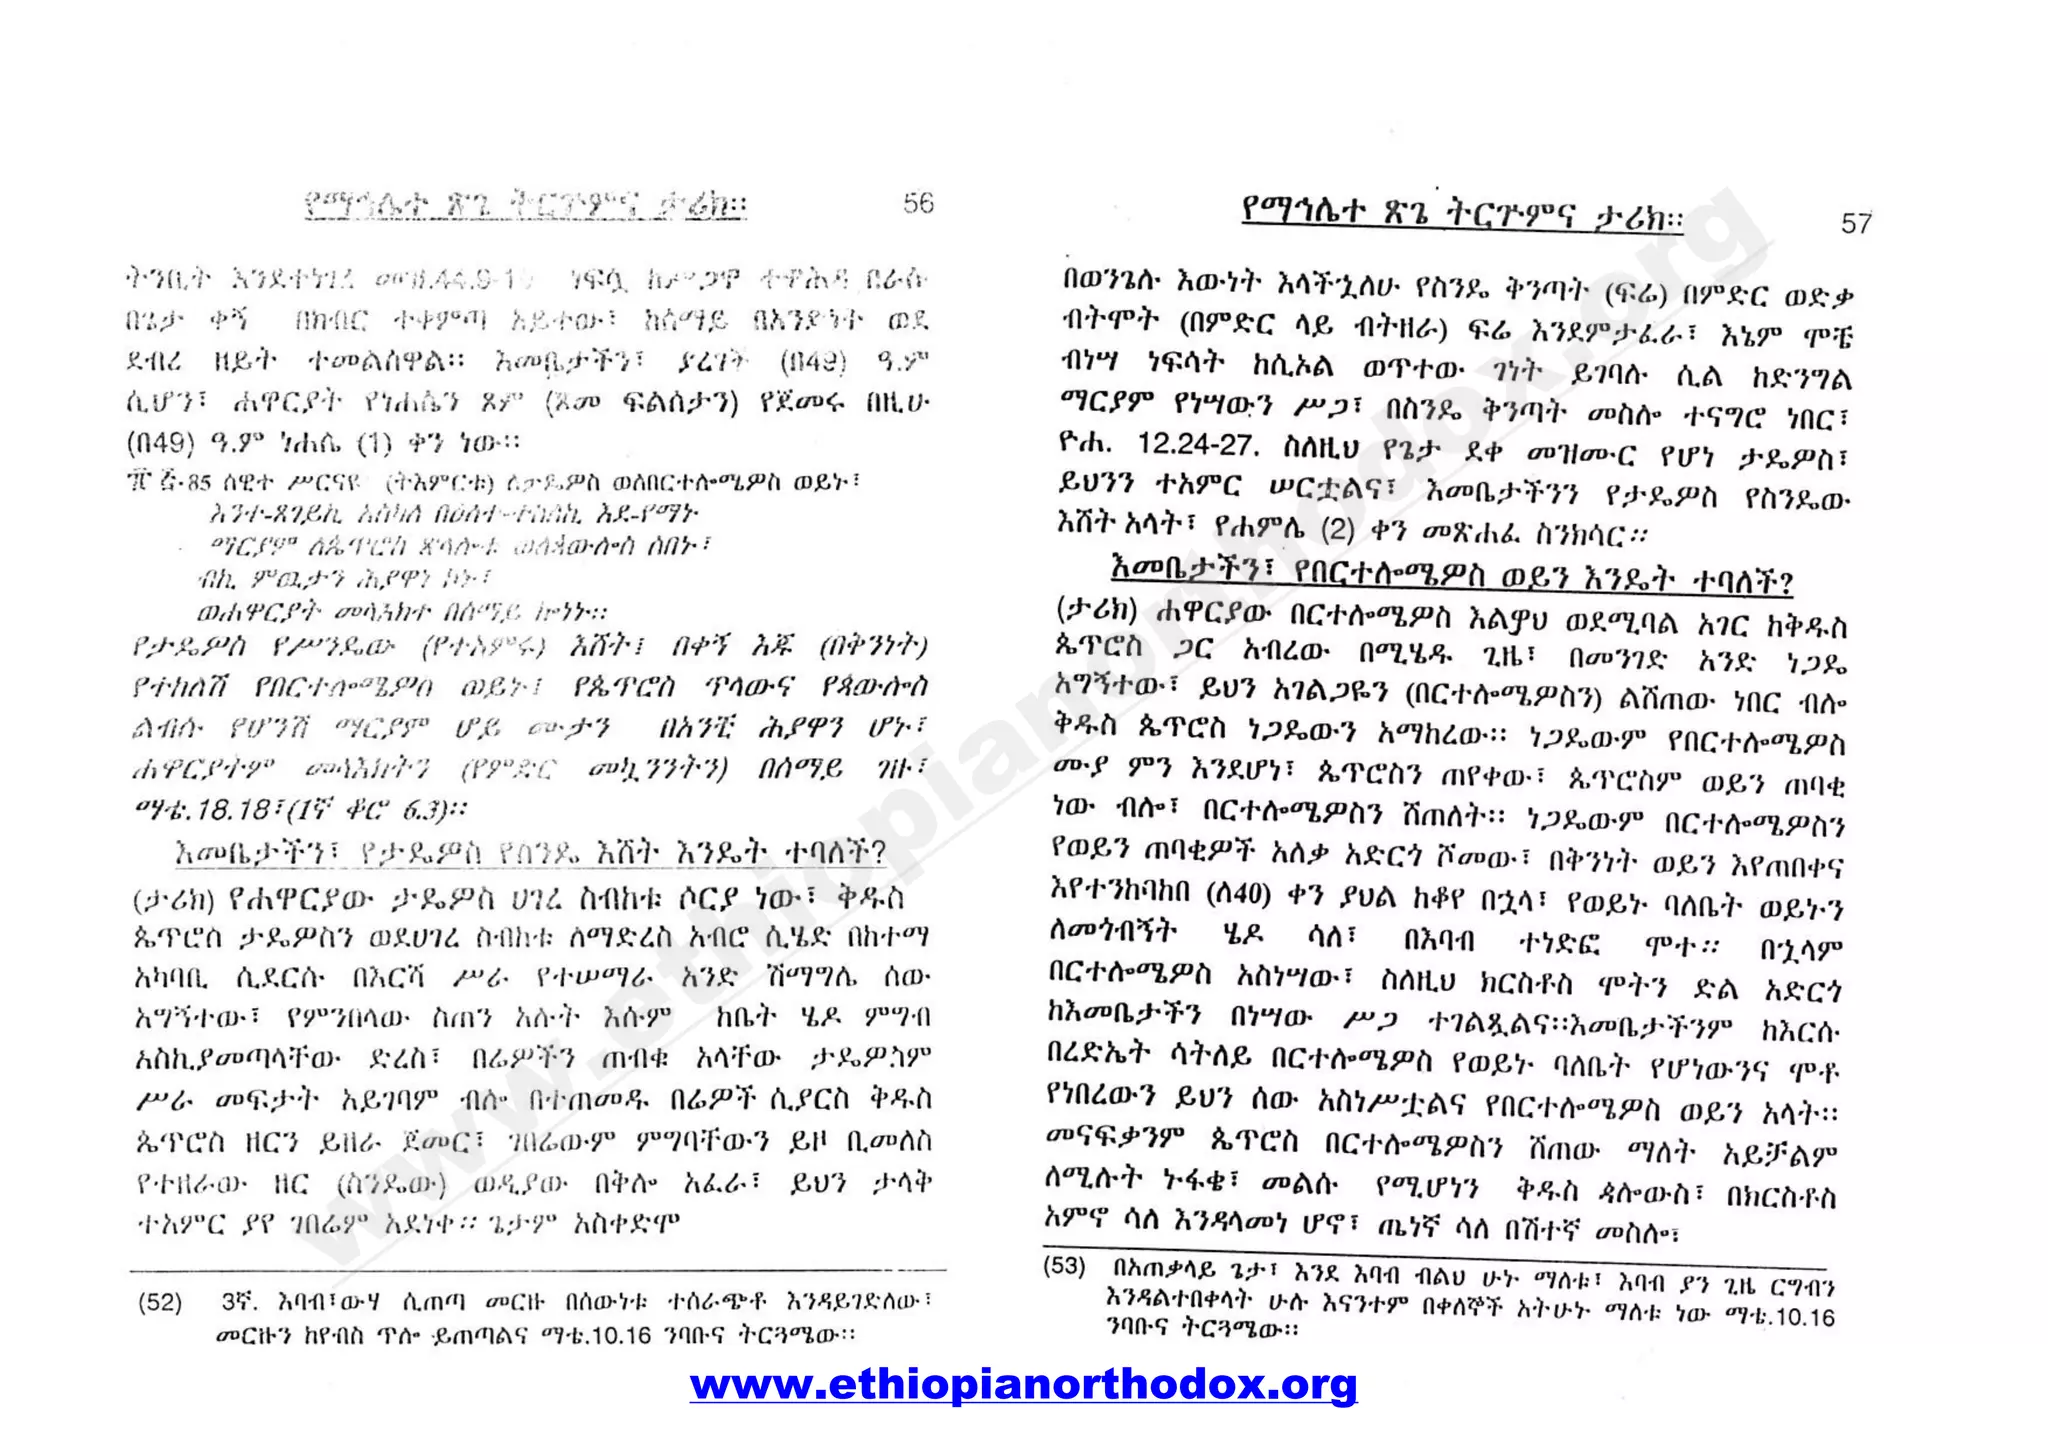 የማኅሌተ ጽጌ ትርጕምና ታሪክ። 56
ትንቢት እንደተነገረ መዝ.44.9- ነፍሷ ከሥጋዋ ተዋሕዳ በራሱ
በጌታ ቀኝ በክብር ተቀምጣ አይተው፤ ከሰማይ በአንድነት ወደ
ደብረ ዘይት ተመልሰዋል። እመቤታችን፤ ያረገች (በ49) ዓ.ም
ሲሆን፤ ሐዋርያት የነሐሴን ጾም (ጾመ ፍልሰታን) የጀመሩ በዚሁ
(በ49) ዓ.ም ነሐሴ (1) ቀን ነው።
85 ሰዊተ ሥርናዩ (ትእምርቱ) ለታዴዎስ ወለበርተሎሜዎስ ወይኑ፤
እንተ-ጸገይኪ አስካለ በዕለተ-ተከለኪ እደ-የማኑ
ማርያም ለጴጥሮስ ጽላሎቱ ወለጳውሎስ ሰበኑ፤
ብኪ ምዉታን ሕያዋነ ኮኑ፤
ወሐዋርያት መላእክተ በሰማይ ኰነኑ።
የታዴዎስ የሥንዴው (የተአምሩ) እሸት፤ በቀኝ እጁ (በቅንነት)
የተከለሽ የበርተሎሜዎስ ወይኑ፤ የጴጥሮስ ጥላውና የጳውሎስ
ልብሱ የሆንሽ ማርያም ሆይ ሙታን በአንቺ ሕያዋን ሆኑ፤
ሐዋርያትም መላእክትን (የምድር መኳንንትን) በሰማይ ገዙ፤
ማቴ.18.18፤(1ኛ ቆሮ 6.3)።
እመቤታችን፤ የታዴዎስ የስንዴ እሸት እንዴት ተባለች?
(ታሪክ) የሐዋርያው ታዴዎስ ሀገረ ስብከቱ ሶርያ ነው፤ ቅዱስ
ጴጥሮስ ታዴዎስን ወደሀገረ ስብከቱ ለማድረስ አብሮ ሲሄድ በከተማ
አካባቢ ሲደርሱ በእርሻ ሥራ የተሠማራ አንድ ሽማግሌ ሰው
አግኝተው፤ የምንበላው ስጠን አሉት እሱም ከቤት ሄዶ ምግብ
አስኪያመጣላቸው ድረስ፤ በሬዎችን ጠብቁ አላቸው ታዴዎስም
ሥራ መፍታት አይገባም ብሎ በተጠመዱ በሬዎች ሲያርስ ቅዱስ
ጴጥሮስ ዘርን ይዘራ ጀመር፤ ገበሬውም ምግባቸውን ይዞ ቢመለስ
የተዘራው ዘር (ስንዴው) ወዲያው በቅሎ አፈራ፤ ይህን ታላቅ
ተአምር ያየ ገበሬም አደነቀ። ጌታም አስቀድሞ
(52) 3ኛ. እባብ፤ውሃ ሲጠጣ መርዙ በሰውነቱ ተሰራጭቶ እንዳይገድለው፤
መርዙን ከየብስ ጥሎ ይጠጣልና ማቴ.10.16 ንባቡና ትርጓሜው።
የማኅሌተ ጽጌ ትርጕምና ታሪክ። 57
በወንጌሉ እውነት እላችኋለሁ የስንዴ ቅንጣት (ፍሬ) በምድር ወድቃ
ብትሞት (በምድር ላይ ብትዘራ) ፍሬ እንደምታፈራ፤ እኔም ሞቼ
ብነሣ ነፍሳት ከሲኦል ወጥተው ገነት ይገባሉ ሲል ከድንግል
ማርያም የነሣውን ሥጋ፤ በስንዴ ቅንጣት መስሎ ተናግሮ ነበር፤
ዮሐ. 12.24-27. ስለዚህ የጌታ ደቀ መዝሙር የሆነ ታዴዎስ፤
ይህንን ተአምር ሠርቷልና፤ እመቤታችንን የታዴዎስ የስንዴው
እሸት አላት፤ የሐምሌ (2) ቀን መጽሐፈ ስንክሳር።
እመቤታችን፤ የበርተሎሜዎስ ወይን እንዴት ተባለች?
(ታሪክ) ሐዋርያው በርተሎሜዎስ እልዋህ ወደሚባል አገር ከቅዱስ
ጴጥሮስ ጋር አብረው በሚሄዱ ጊዜ፤ በመንገድ አንድ ነጋዴ
አግኝተው፤ ይህን አገልጋዬን (በርተሎሜዎስን) ልሽጠው ነበር ብሎ
ቅዱስ ጴጥሮስ ነጋዴውን አማከረው። ነጋዴውም የበርተሎሜዎስ
ሙያ ምን እንደሆነ፤ ጴጥሮስን ጠየቀው፤ ጴጥሮስም ወይን ጠባቂ
ነው ብሎ፤ በርተሎሜዎስን ሽጠለት። ነጋዴውም በርተሎሜዎስን
የወይን ጠባቂዎች አለቃ አድርጎ ሾመው፤ በቅንነት ወይን እየጠበቀና
እየተንከባከበ (ለ40) ቀን ያህል ከቆየ በኋላ፤ የወይኑ ባለቤት ወይኑን
ለመጎብኝት ሄዶ ሳለ፤ በእባብ ተነድፎ ሞተ። በኋላም
በርተሎሜዎስ አስነሣው፤ ስለዚህ ክርስቶስ ሞትን ድል አድርጎ
ከእመቤታችን በነሣው ሥጋ ተገልጿልና።እመቤታችንም ከእርሱ
በረድኤት ሳትለይ በርተሎሜዎስ የወይኑ ባለቤት የሆነውንና ሞቶ
የነበረውን ይህን ሰው አስነሥቷልና የበርተሎሜዎስ ወይን አላት።
መናፍቃንም ጴጥሮስ በርተሎሜዎስን ሽጠው ማለት አይቻልም
ለሚሉት ኑፋቄ፤ መልሱ የሚሆነን ቅዱስ ጳሎውስ፤ በክርስቶስ
አምኖ ሳለ እንዳላመነ ሆኖ፤ ጤነኛ ሳለ በሽተኛ መስሎ፤
(53) በአጠቃላይ ጌታ፤ እንደ እባብ ብልህ ሁኑ ማለቱ፤ እባብ ያን ጊዜ ርግብን
እንዳልተበቀላት ሁሉ እናንተም በቀለኞች አትሁኑ ማለቱ ነው ማቴ.10.16
ንባቡና ትርጓሜው።
www.ethiopianorthodox.org
www.ethiopianorthodox.org